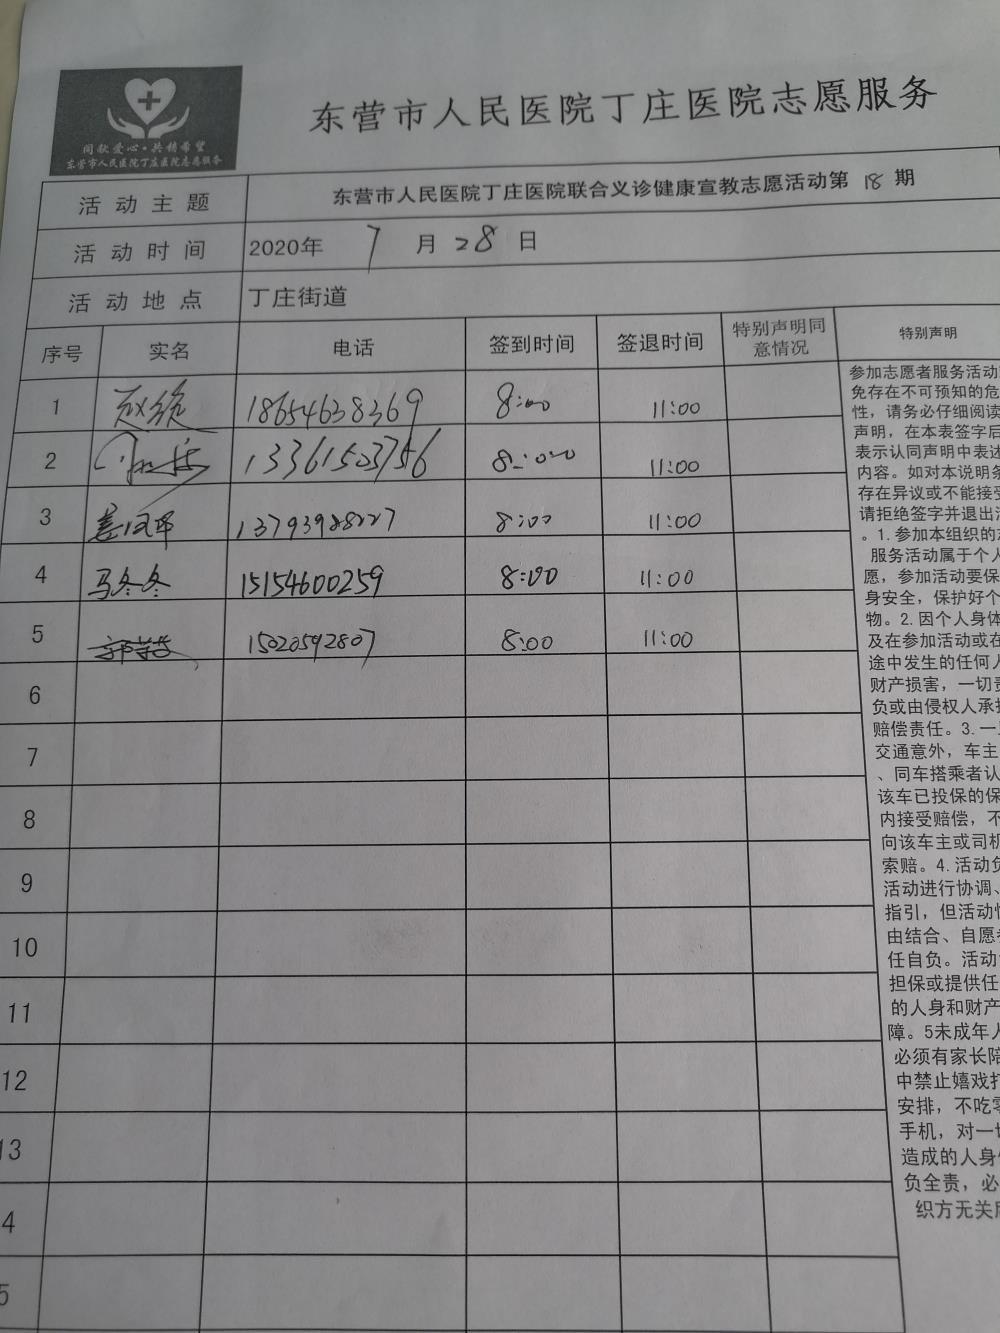 同献爱心·共铸希望
东营市人民医院丁庄医院志愿服务
东营市人民医院丁庄医院志愿服务
活动主题 东营市人民医院丁庄医院联合义诊健康宣教志愿活动第 18 期
活动时间 2020年 7 月 28 日
活动地点 丁庄街道
序号 实名 电话 签到时间 签退时间 特别声明同意情况 特别声明
1 18654638369 8:00 11:00
2 13361523756 8:00 11:00
3 13793988227 8:00 11:00
4 马冬冬 15154600259 8:00 11:00
5 15020592807 8:00 11:00
6
7
8
9
10
11
12
13
4
5
参加志愿者服务活动
免存在不可预知的危
性，请务必仔细阅读
声明，在本表签字后
表示认同声明中表述
内容。如对本说明条
存在异议或不能接受
请拒绝签字并退出活
。1.参加本组织的志
服务活动属于个人
愿，参加活动要保
身安全，保护好个
物。2.因个人身体
及在参加活动或在
途中发生的任何人
财产损害，一切责
负或由侵权人承担
赔偿责任。3.一
交通意外，车主
、同车搭乘者认
该车已投保的保
内接受赔偿，不
向该车主或司机
索赔。4.活动负
活动进行协调、
指引，但活动性
由结合、自愿参
任自负。活动
担保或提供任
的人身和财产
障。5未成年人
必须有家长陪
中禁止嬉戏打
安排，不吃零
手机，对一切
造成的人身
负全责，必
织方无关